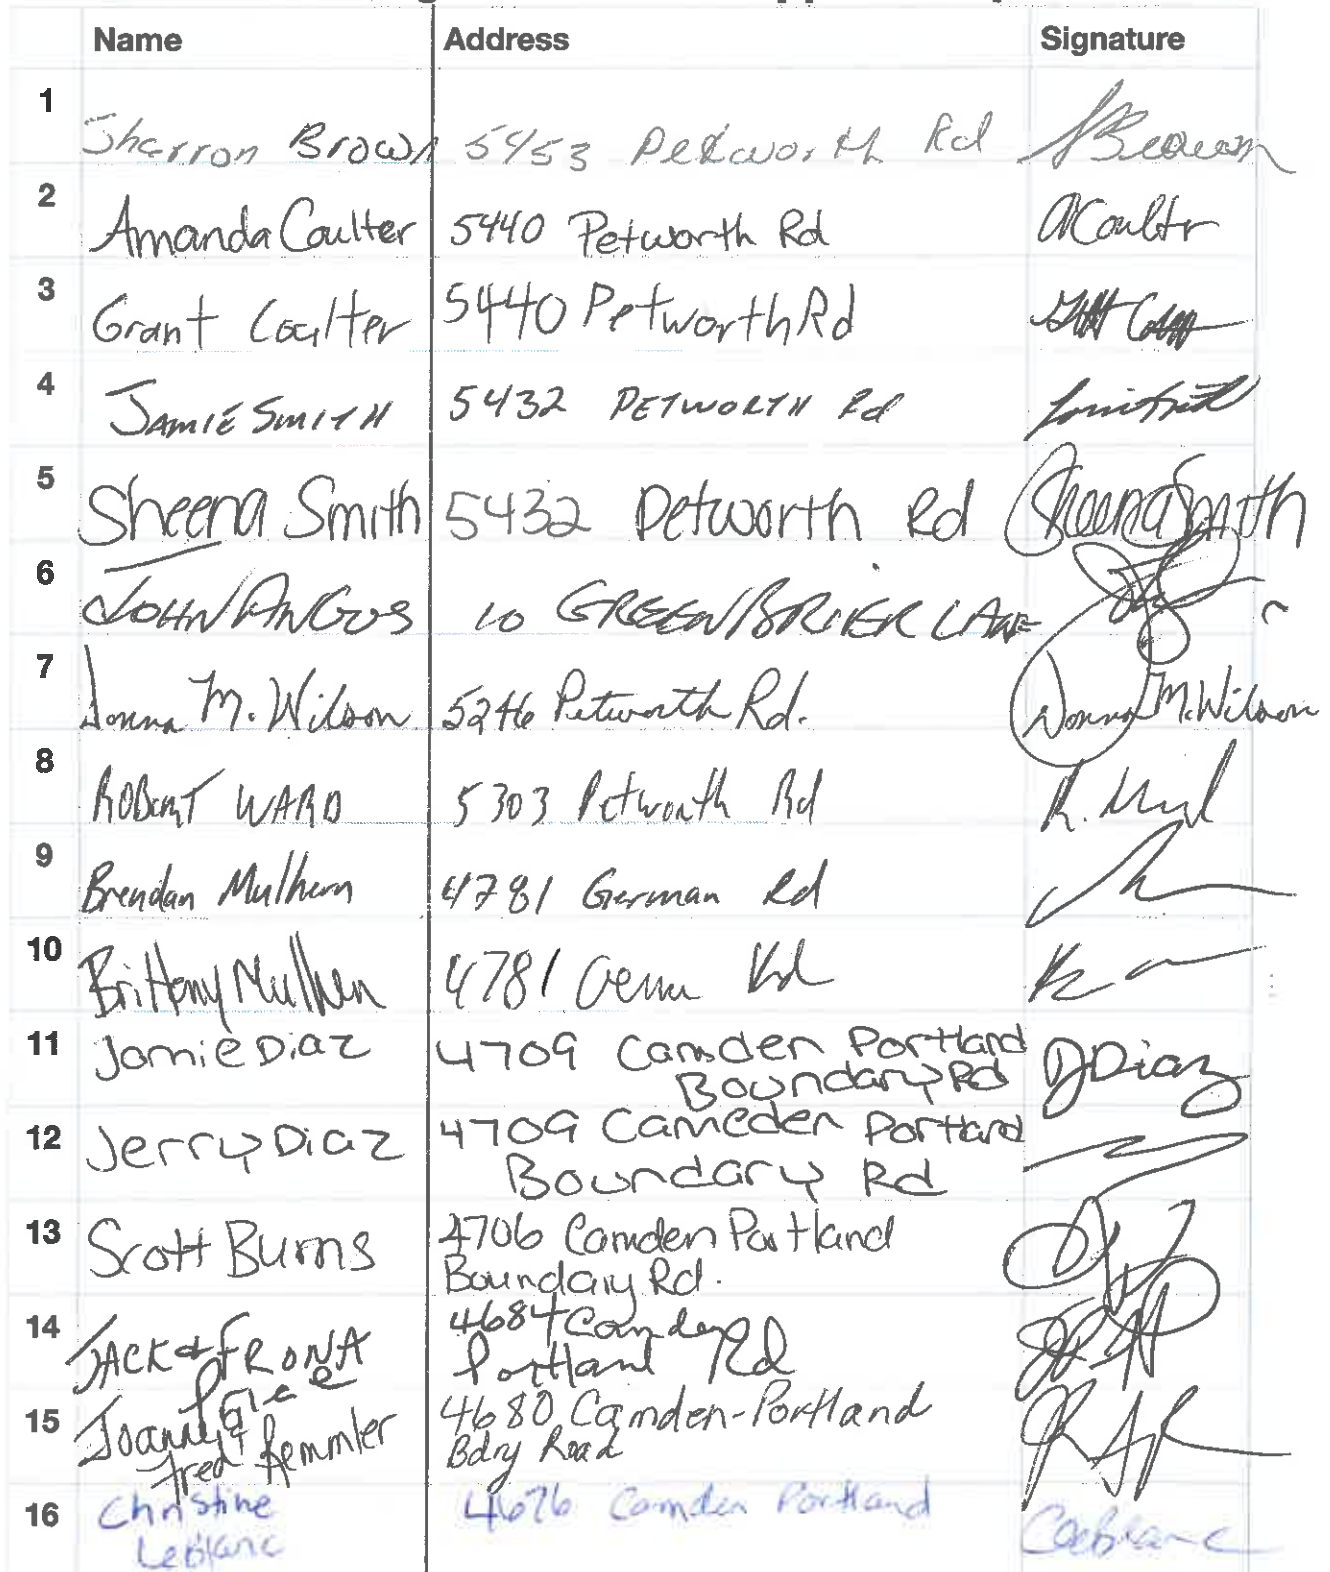 Name Address Signature
1 Sharron Brown 5453 Petworth Rd SBrown
2 Amanda Coulter 5440 Petworth Rd ACoulter
3 Grant Coulter 5440 Petworth Rd
4 JAMIE SMITH 5432 PETWORTH Rd
5 Sheena Smith 5432 Petworth Rd Sheena Smith
6 JOHN ANGUS 10 GREEN BRIER LANE
7 Donna M. Wilson 5246 Petworth Rd. Donna M. Wilson
8 ROBERT WARD 5303 Petworth Rd
9 Brendan Mulhern 4781 German Rd
10 Brittany Mulhern 4781 Rd
11 Jamie Diaz 4709 Camden Portland JDiaz
Boundary Rd
12 Jerry Diaz 4709 Cameden Portland
Boundary Rd
13 Scott Burns 4706 Camden Portland
Boundary Rd.
14 JACK & FRONA 4684 Camden
Portland Rd
15 Joanne & 4680 Camden-Portland
Fred Remmler Bdry Road
16 Christine 4676 Camden Portland CLeBlanc
LeBlanc